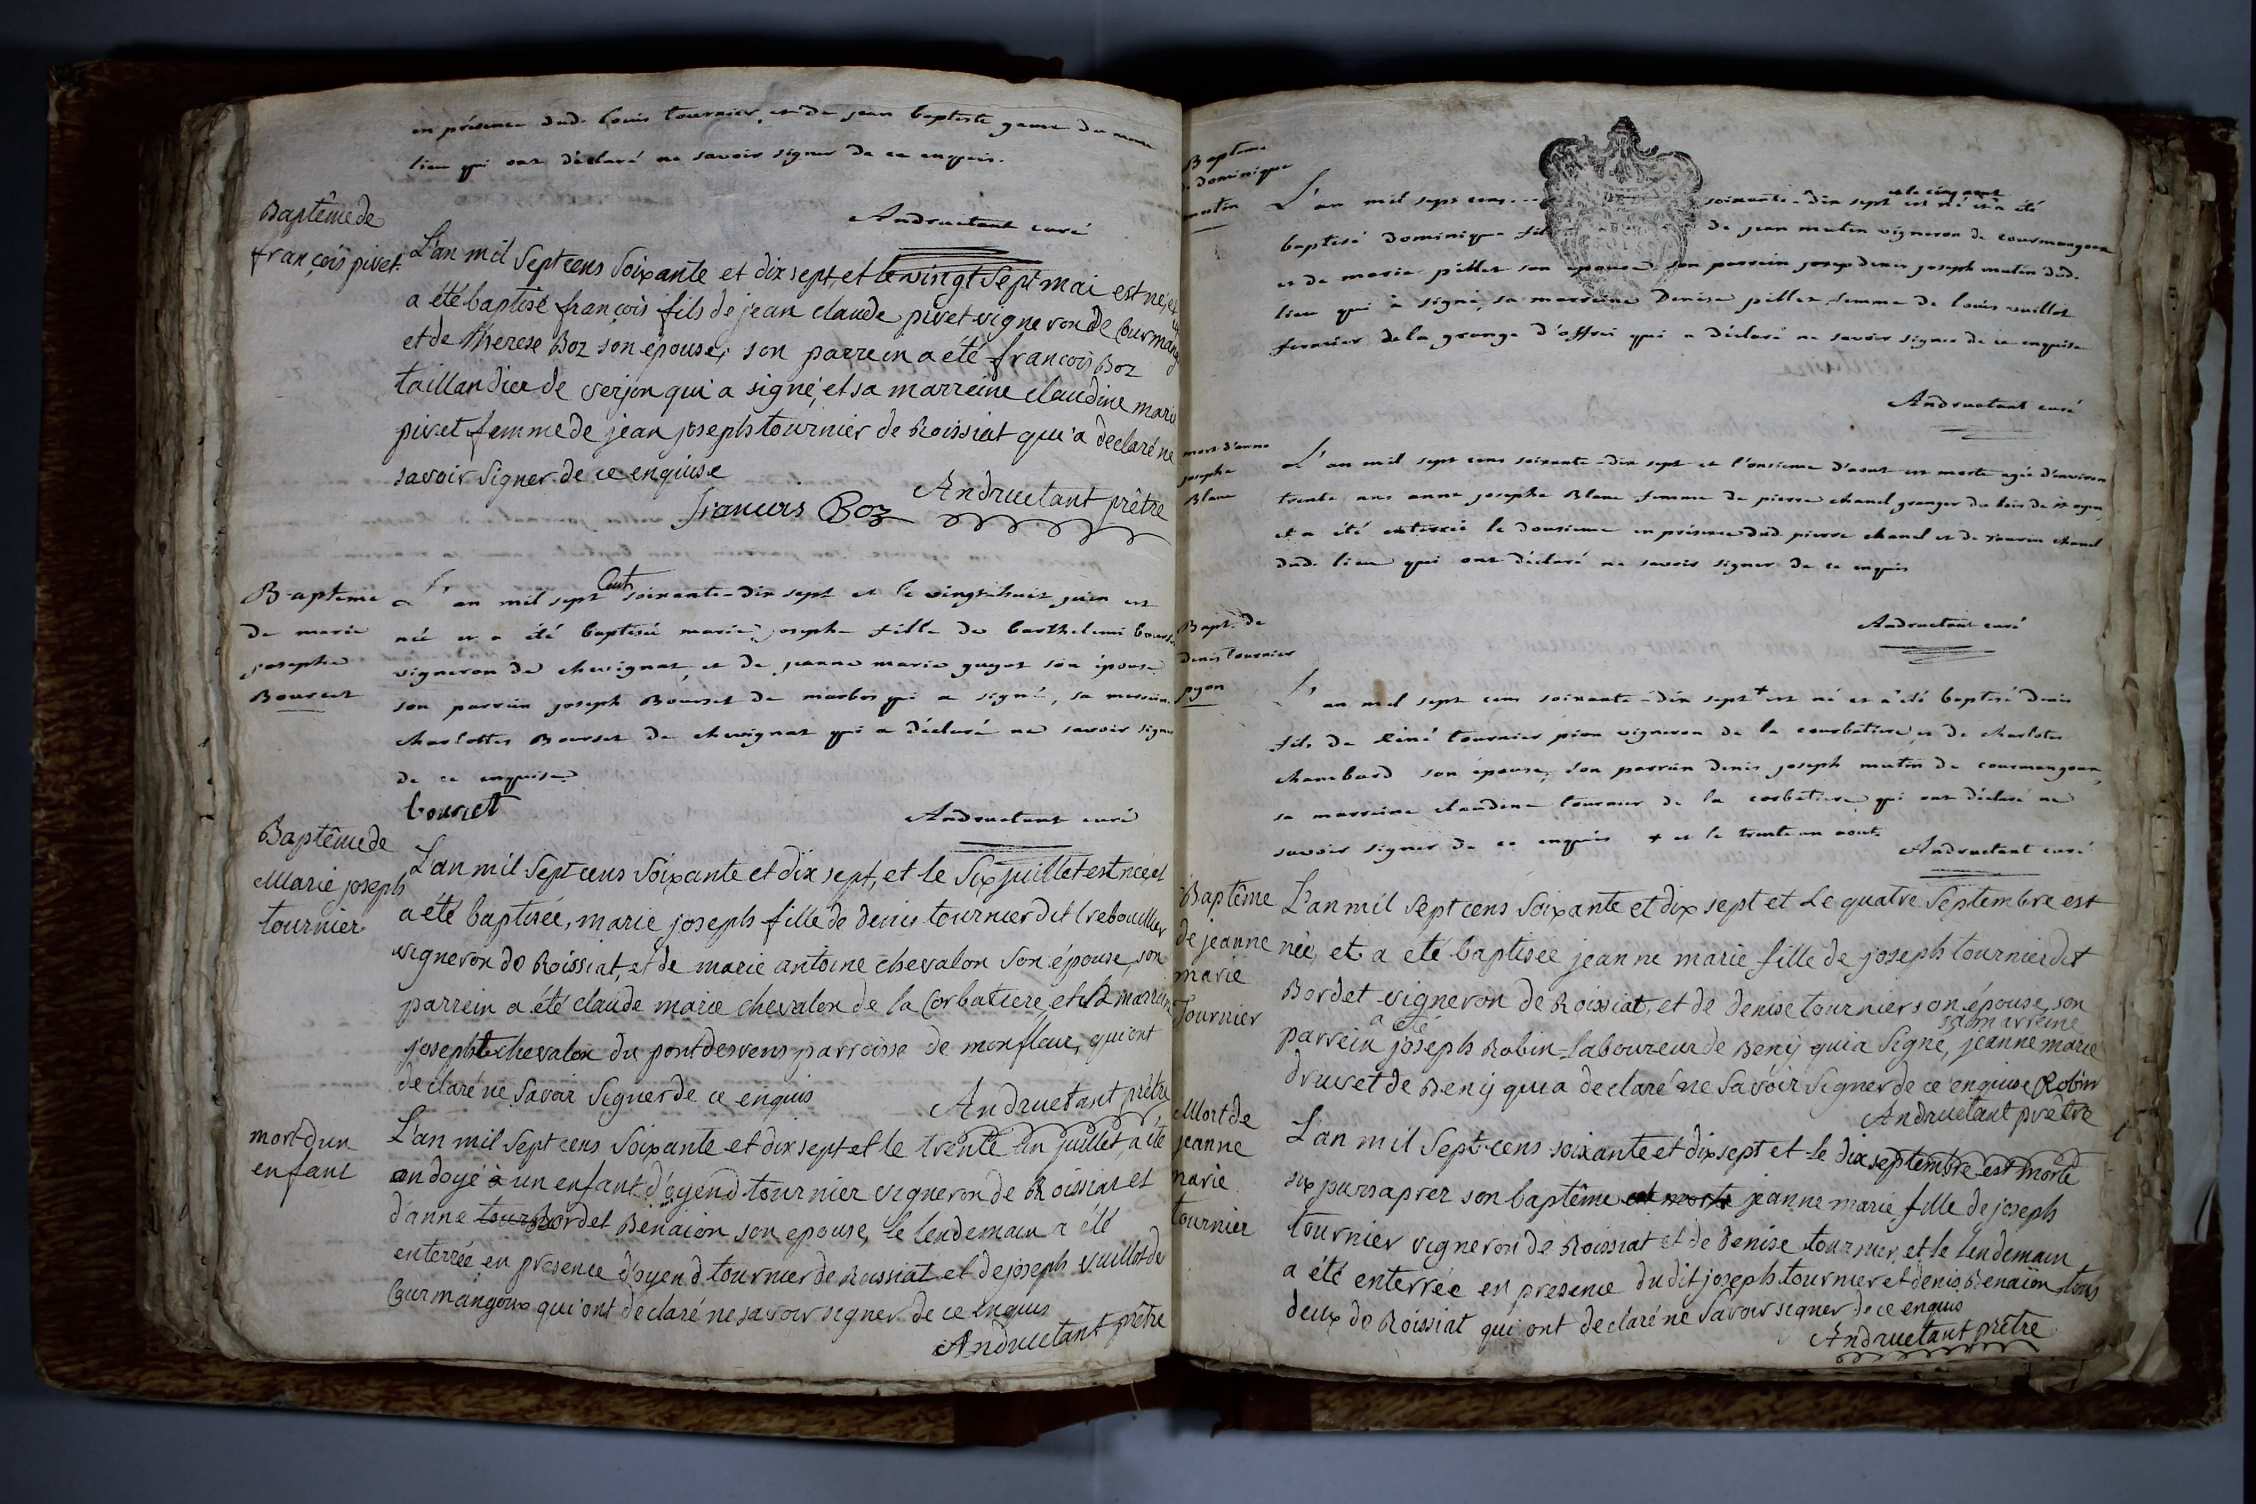 en présence dud. louis tournier, et de jean baptiste game du meme
lieu qui ont déclaré ne savoir signer de ce enquis.
Andruetant curé
Baptême de
françois pivet.
L'an mil Sept cens Soixante et dix sept, et le vingt Sept mai est né, et
a été baptisé françois fils de jean claude pivet vigneron de Courmang
et de Therese Boz son épouse, son parrein a été françois Boz
taillandier de verjon qui a signé, et sa marreine claudine marie
pivet femme de jean joseph tournier de Roissiat qui a declaré ne
savoir signer de ce enquise
francois Boz Andruetant prêtre
Bapteme
de marie
josephe
Bourcet
L'an mil sept cent soixante-dix sept et le vingt-huit juin est
née et a été baptisée marie josephe fille de barthelemi bourcet
vigneron de chevignat, et de jeanne marie guyot son épouse
son parrein joseph Bourcet de marbos qui a signé, sa marreine
charlotte Bourcet de chevignat qui a déclaré ne savoir signer
de ce enquise
bourcet
Andruetant curé
Baptême de
Marie joseph
tournier
L'an mil Sept cens Soixante et dix sept, et le Six juillet est née, et
a été baptisée, marie joseph fille de denis tournier dit trebouillier
vigneron de Roissiat, et de marie antoine chevalon Son épouse, son
parrein a été claude marie chevalon de la Corbatiere, et sa marreine
josephte chevalon du pont des vens parroisse de monfleur, qui ont
declaré ne Savoir Signer de ce enquis
Andruetant prêtre
mort d'un
enfant
L'an mil Sept cens Soixante et dix sept et le trente un juillet, a été
ondoyé à un enfant d'oyend tournier vigneron de Roissiat et
d'anne tour Bordet Benaion son epouse, le lendemain a été
enterrée en presence d'oyend tournier de Roissiat et de joseph vuillot de
Courmangoux qui ont declaré ne savoir signer de ce enquis
Andruetant prêtre
Bapteme
dominique
mutin
L'an mil sept cens soixante-dix sept et le cinq aout est né et a été
baptisé dominique fils de jean mutin vigneron de courmangoux
et de marie pillet son epouse, son parrein joseph denis joseph mutin dud.
lieu qui a signé, sa marreine Denise pillet femme de louis vuillot
fermier de la grange d'affroi qui a déclaré ne savoir signer de ce enquise
Andruetant curé
mort d'anne
josephe
Blanc
L'an mil sept cens soixante-dix sept et l'onsieme d'aout est morte agée d'environ
trente ans anne josephe Blanc femme de pierre chanel granger du bois de st oyen,
et a été enterrée le dousieme en présence dud. pierre chanel et de chanel
dud. lieu qui ont déclaré ne savoir signer de ce enquis
Andruetant curé
Bapt. de
denis tournier
pyon
L'an mil sept cens soixante-dix sept + est né et a été baptisé denis
fils de Réné tournier pion vigneron de la courbatiere, et de charlotte
chambard son épouse, son parrein denis joseph mutin de courmangoux,
sa marreine claudine de la corbatiere, qui ont déclaré ne
savoir signer de ce enquis + et le trente un aout.
Andruetant curé
Baptême
de jeanne
marie
Tournier
L'an mil Sept cens Soixante et dix sept et Le quatre Septembre est
née, et a été baptisée jeanne marie fille de joseph tournier dit
Bordet vigneron de Roissiat, et de denise tournier son épouse, son
parrein a été joseph Robin Laboureur de Beny qui a Signé, sa marreine jeanne marie
druvet de Beny qui a declaré ne Savoir Signer de ce enquise Robin
Andruetant prêtre
Mort de
jeanne
marie
tournier
L'an mil Sept cens soixante et dix sept et le dix septembre est morte
six jours aprez son baptême est morte jeanne marie fille de joseph
tournier vigneron de Roissiat et de denise tournier, et le lendemain
a été enterrée en presence du dit joseph tournier et denis Benaion tous
deux de Roissiat qui ont declaré ne Savoir signer de ce enquis
Andruetant prêtre